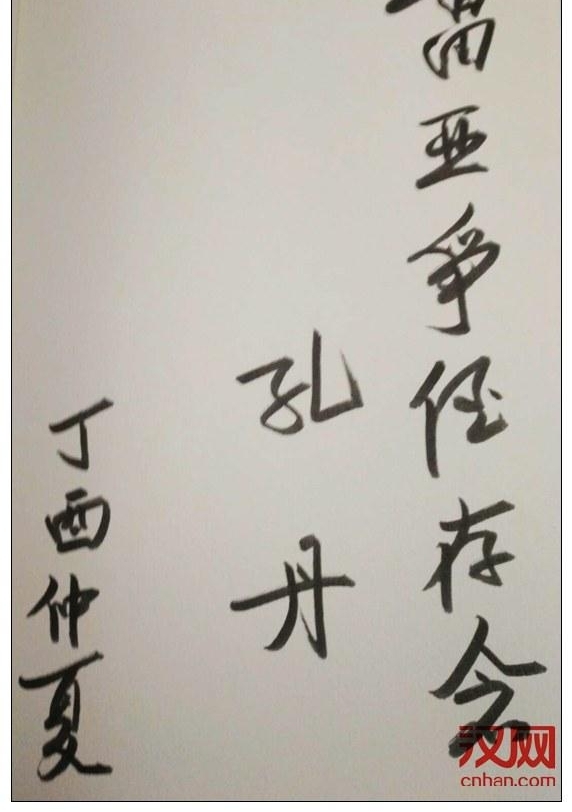 亚爭侄存念
孔丹
丁酉仲夏
汉网
cnhan.com